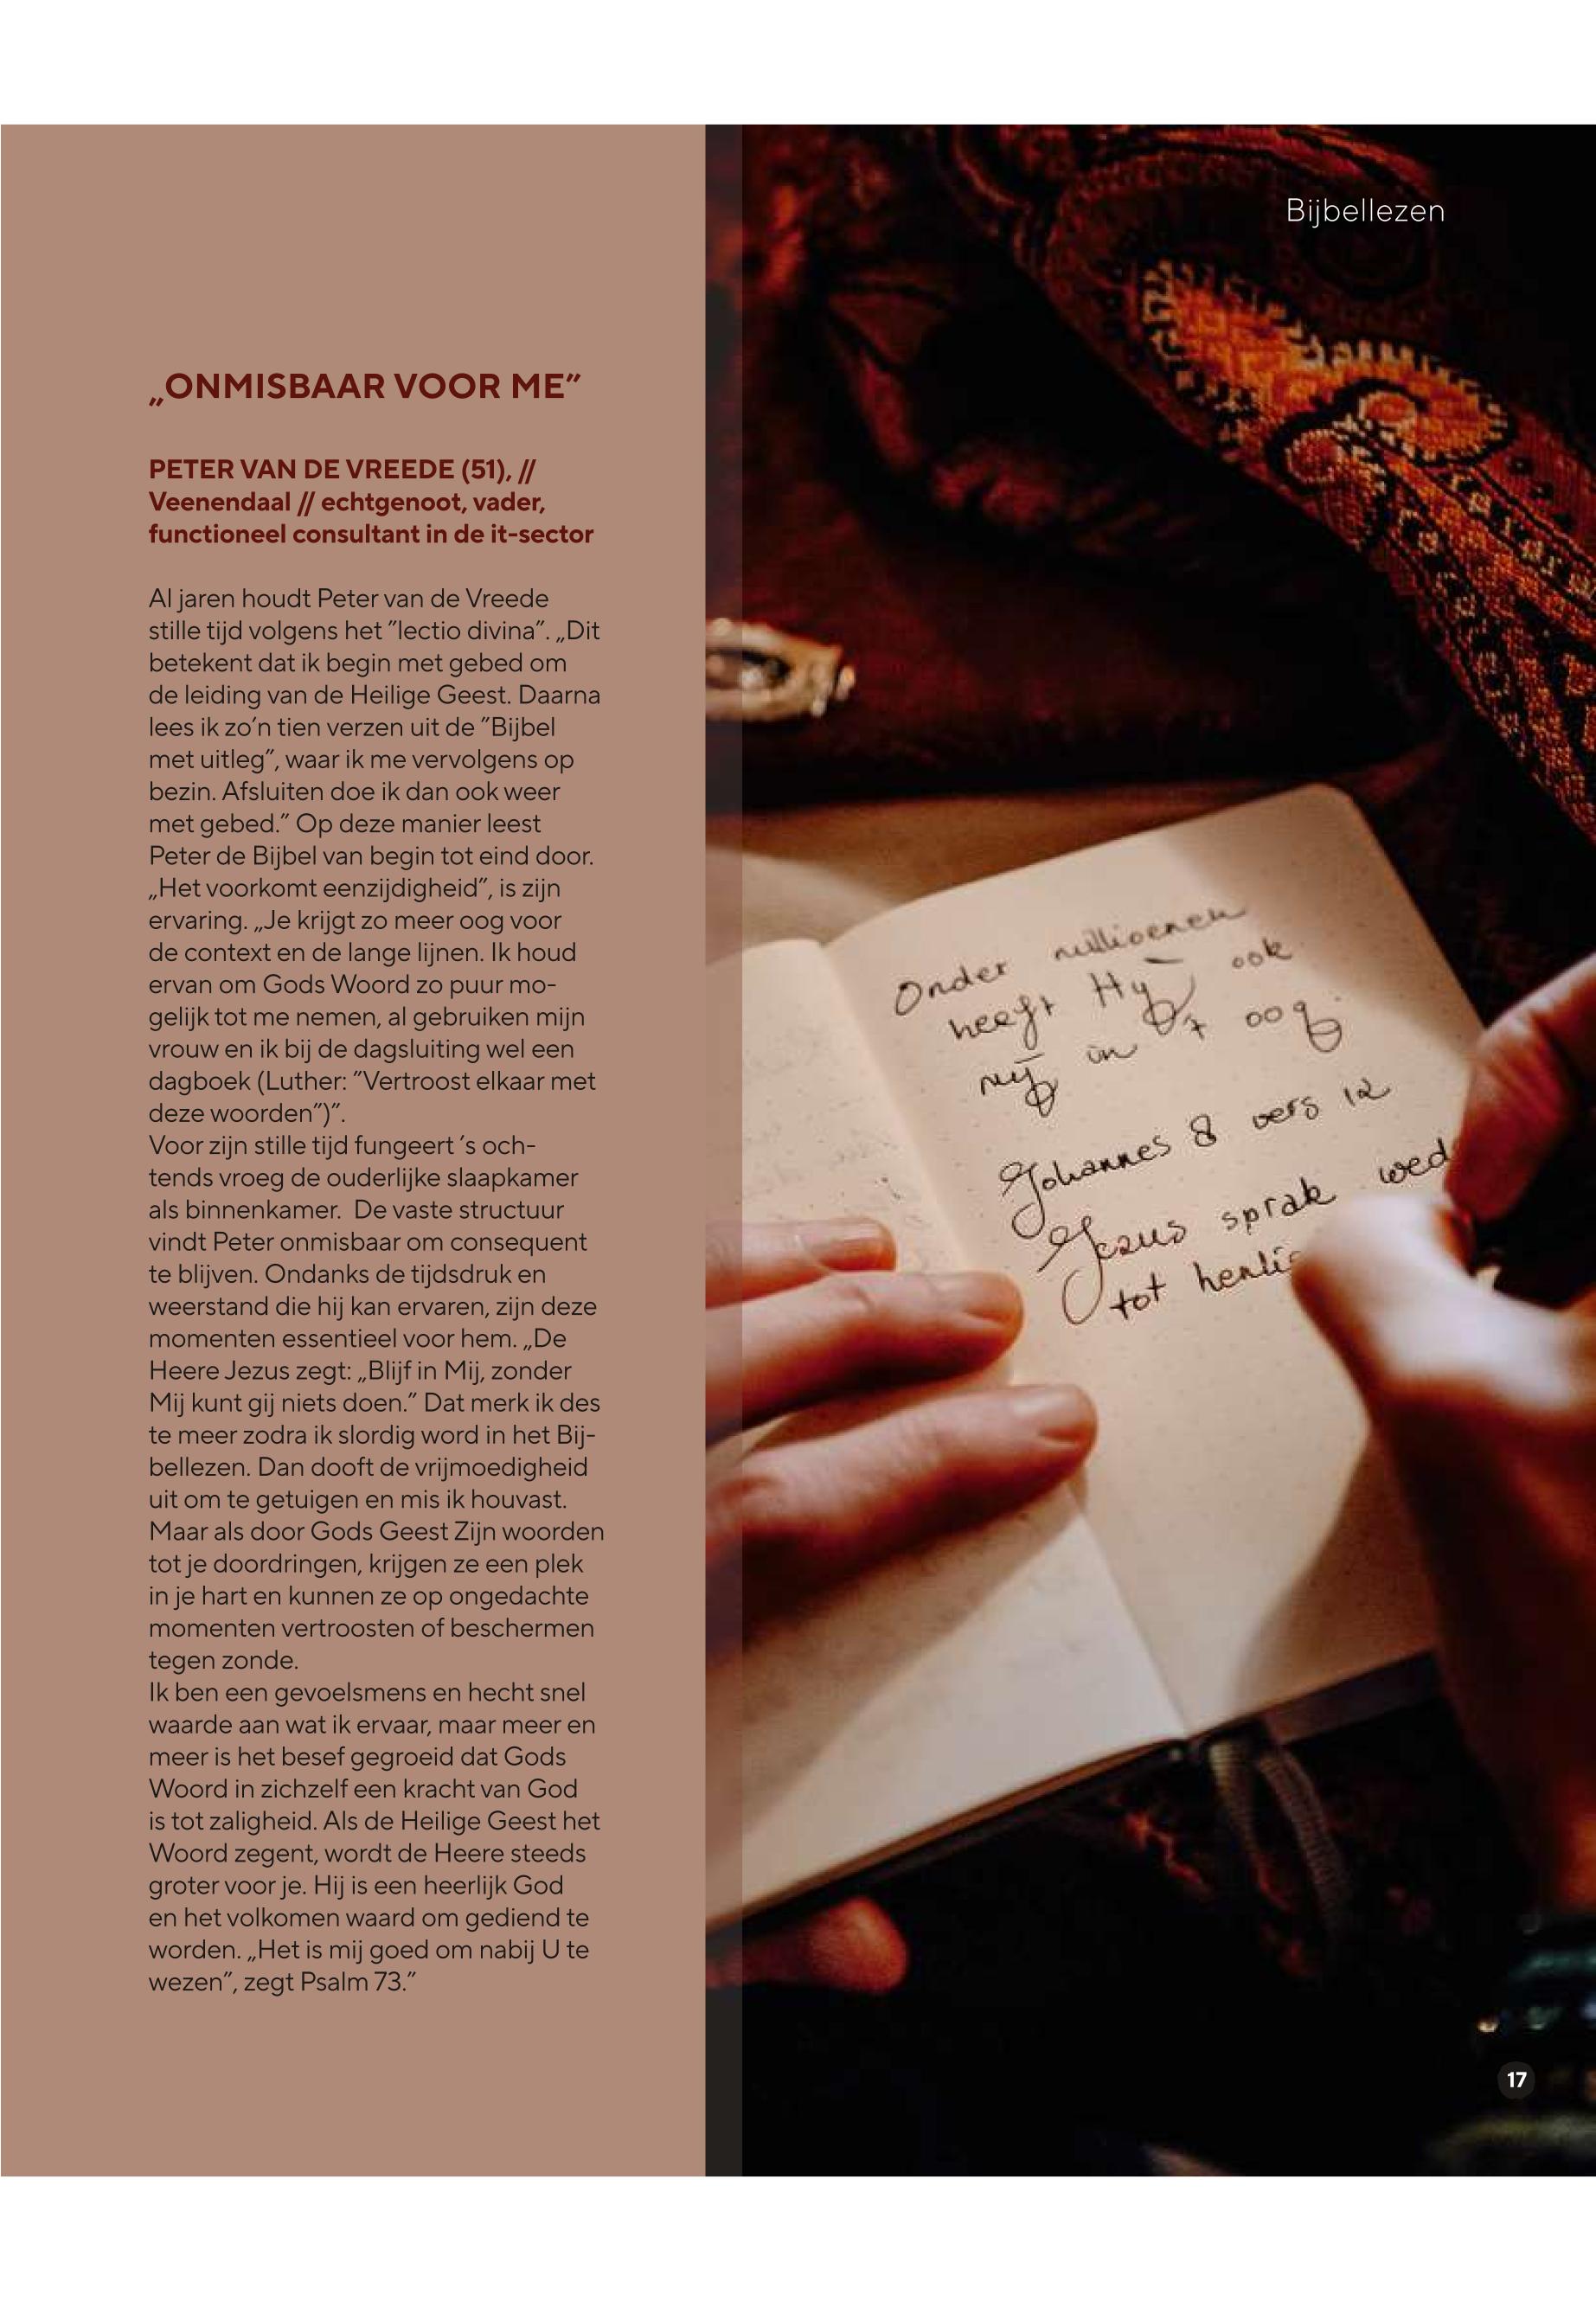 Bijbellezen
„ONMISBAAR VOOR ME”
PETER VAN DE VREEDE (51), //
Veenendaal // echtgenoot, vader,
functioneel consultant in de it-sector
Al jaren houdt Peter van de Vreede
stille tijd volgens het ”lectio divina”. „Dit
betekent dat ik begin met gebed om
de leiding van de Heilige Geest. Daarna
lees ik zo’n tien verzen uit de ”Bijbel
met uitleg”, waar ik me vervolgens op
bezin. Afsluiten doe ik dan ook weer
met gebed.” Op deze manier leest
Peter de Bijbel van begin tot eind door.
„Het voorkomt eenzijdigheid”, is zijn
ervaring. „Je krijgt zo meer oog voor
de context en de lange lijnen. Ik houd
ervan om Gods Woord zo puur mo-
gelijk tot me nemen, al gebruiken mijn
vrouw en ik bij de dagsluiting wel een
dagboek (Luther: ”Vertroost elkaar met
deze woorden”)”.
Voor zijn stille tijd fungeert ’s och-
tends vroeg de ouderlijke slaapkamer
als binnenkamer.  De vaste structuur
vindt Peter onmisbaar om consequent
te blijven. Ondanks de tijdsdruk en
weerstand die hij kan ervaren, zijn deze
momenten essentieel voor hem. „De
Heere Jezus zegt: „Blijf in Mij, zonder
Mij kunt gij niets doen.” Dat merk ik des
te meer zodra ik slordig word in het Bij-
bellezen. Dan dooft de vrijmoedigheid
uit om te getuigen en mis ik houvast.
Maar als door Gods Geest Zijn woorden
tot je doordringen, krijgen ze een plek
in je hart en kunnen ze op ongedachte
momenten vertroosten of beschermen
tegen zonde.
Ik ben een gevoelsmens en hecht snel
waarde aan wat ik ervaar, maar meer en
meer is het besef gegroeid dat Gods
Woord in zichzelf een kracht van God
is tot zaligheid. Als de Heilige Geest het
Woord zegent, wordt de Heere steeds
groter voor je. Hij is een heerlijk God
en het volkomen waard om gediend te
worden. „Het is mij goed om nabij U te
wezen”, zegt Psalm 73.”
Onder millioenen
heeft Hij ook
mij in 't oog.
Johannes 8 vers 12
Jezus sprak wed
tot henli
17